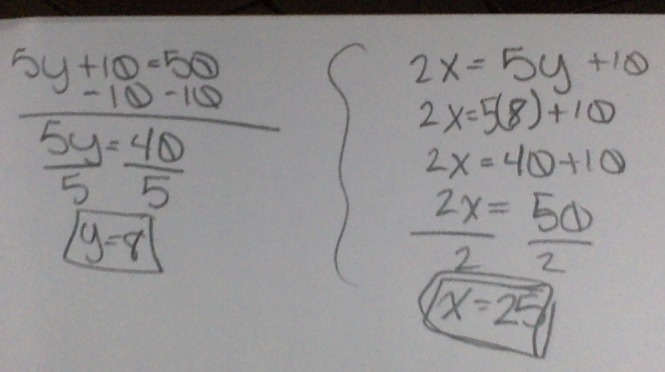 5y+10=50
-10 -10
5y=40
5 5
y=8
2x=5y+10
2x=5(8)+10
2x=40+10
2x=50
2 2
x=25